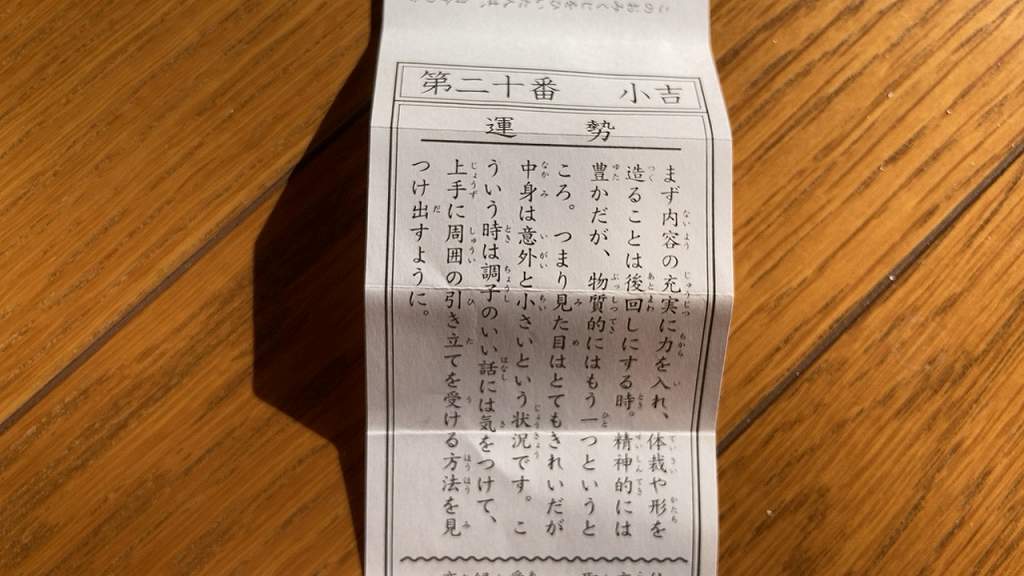 第二十番 小吉
運勢
まず内容の充実に力を入れ、体裁や形を
造ることは後回しにする時。精神的には
豊かだが、物質的にはもう一つというと
ころ。つまり見た目はとてもきれいだが
中身は意外と小さいという状況です。こ
ういう時は調子のいい話には気をつけて、
上手に周囲の引き立てを受ける方法を見
つけ出すように。